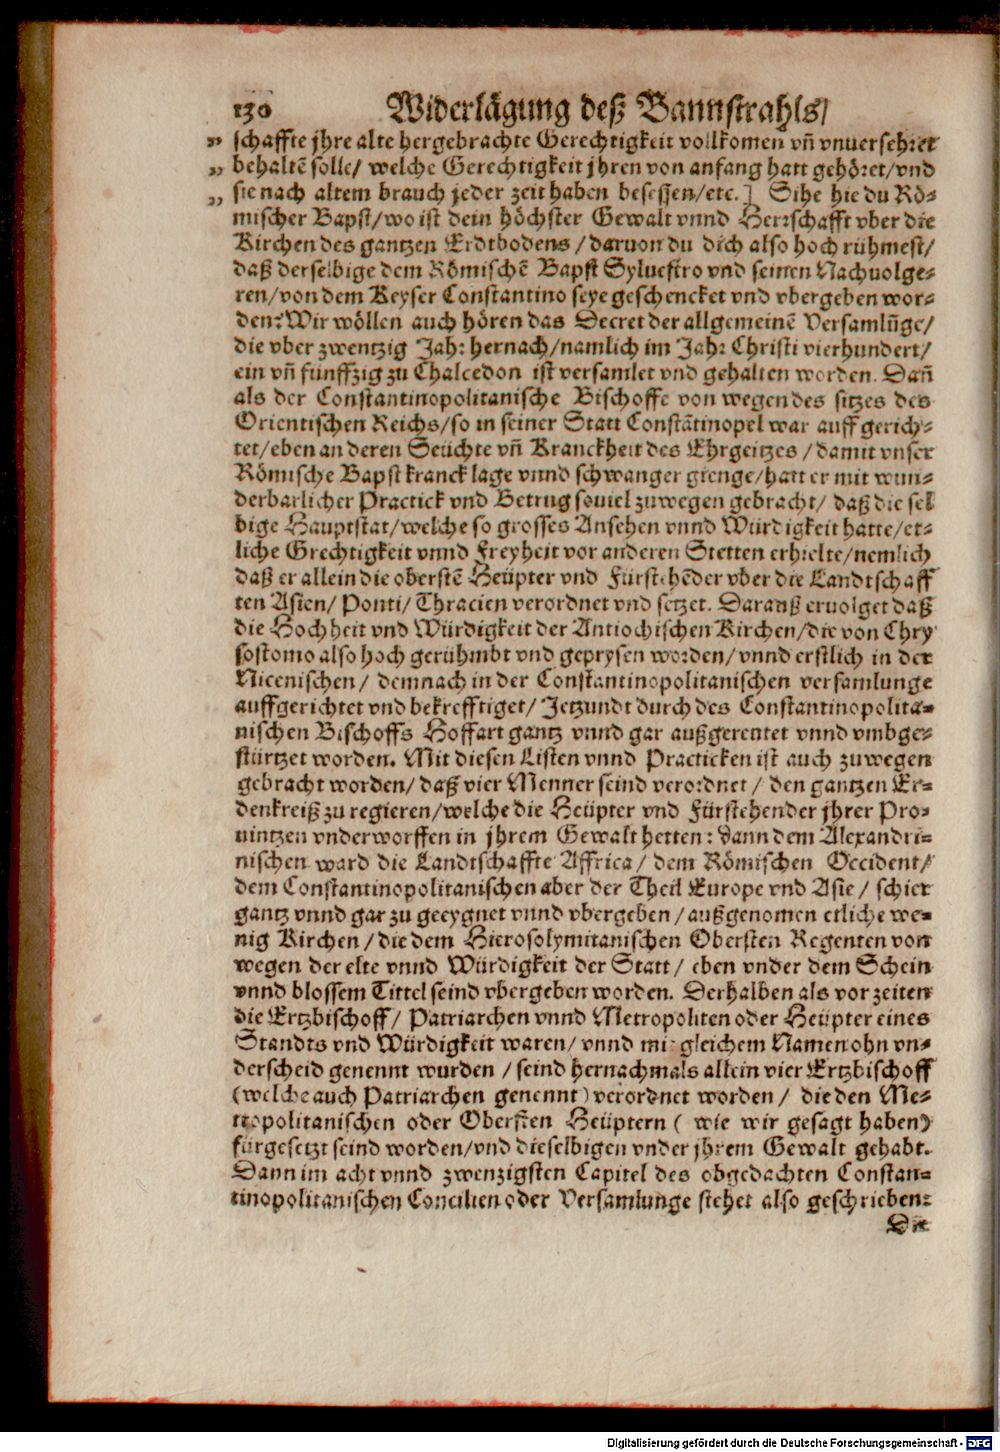 130 Widerlägung deß Bannstrahls/
„ schaffte jhre alte hergebrachte Gerechtigkeit vollkomen vñ vnuersehret
„ behaltẽ solle/ welche Gerechtigkeit jhren von anfang hatt gehöret/vnd
„ sie nach altem brauch jeder zeit haben besessen/etc.] Sihe hie du Rö-
mischer Bapst/wo ist dein höchster Gewalt vnnd Herrschafft vber die
Kirchen des gantzen Erdtbodens/daruon du dich also hoch rühmest/
daß derselbige dem Römischẽ Bapst Sylvestro vnd seinen Nachuolge-
ren/von dem Keyser Constantino seye geschencket vnd vbergeben wor-
den? Wir wöllen auch hören das Decret der allgemeinẽ Versamlũge/
die vber zwentzig Jahr hernach/namlich im Jahr Christi vierhundert/
ein vñ funffzig zu Chalcedon ist versamlet vnd gehalten worden. Dañ
als der Constantinopolitanische Bischoffe von wegen des sitzes des
Orientischen Reichs/so in seiner Statt Constãtinopel war auffgerich-
tet/eben an deren Seüchte vñ Kranckheit des Ehrgeitzes/damit vnser
Römische Bapst kranck lage vnnd schwanger gienge/hatt er mit wun-
derbarlicher Practick vnd Betrug souiel zuwegen gebracht/ daß die sel
bige Hauptstat/welche so grosses Ansehen vnnd Würdigkeit hatte/et-
liche Grechtigkeit vnnd Freyheit vor anderen Stetten erhielte/nemlich
daß er allein die oberstẽ Heüpter vnd Fürstehẽder vber die Landtschaff
ten Asien/ Ponti/ Thracien verordnet vnd setzet. Darauß eruolget daß
die Hochheit vnd Würdigkeit der Antiochischen Kirchen/die von Chry
sostomo also hoch gerühmbt vnd geprysen worden/vnnd erstlich in der
Nicenischen/ demnach in der Constantinopolitanischen versamlunge
auffgerichtet vnd bekrefftiget/ Jetzundt durch des Constantinopolita-
nischen Bischoffs Hoffart gantz vnnd gar außgereutet vnnd vmbge-
stürtzet worden. Mit diesen Listen vnnd Practicken ist auch zuwegen
gebracht worden/ daß vier Menner seind verordnet/ den gantzen Er-
denkreiß zu regieren/welche die Heüpter vnd Fürstehender jhrer Pro-
uintzen vnderworffen in jhrem Gewalt hetten: dann dem Alexandri-
nischen ward die Landtschaffte Affrica/ dem Römischen Occident/
dem Constantinopolitanischen aber der Theil Europe vnd Asie/ schier
gantz vnnd gar zu geeygnet vnnd vbergeben/außgenomen etliche we-
nig Kirchen/die dem Hierosolymitanischen Obersten Regenten von
wegen der elte vnnd Würdigkeit der Statt/ eben vnder dem Schein
vnnd blossem Tittel seind vbergeben worden. Derhalben als vor zeiten
die Ertzbischoff/ Patriarchen vnnd Metropoliten oder Heüpter eines
Standts vnd Würdigkeit waren/ vnnd mit gleichem Namen ohn vn-
derscheid genennt wurden/seind hernachmals allein vier Ertzbischoff
(welche auch Patriarchen genennt) verordnet worden/ die den Me-
tropolitanischen oder Obersten Heüptern (wie wir gesagt haben)
fürgesetzt seind worden/vnd dieselbigen vnder jhrem Gewalt gehabt.
Dann im acht vnnd zwenzigsten Capitel des obgedachten Constan-
tinopolitanischen Concilien oder Versamlunge stehet also geschrieben:
Die
Digitalisierung gefördert durch die Deutsche Forschungsgemeinschaft - DFG